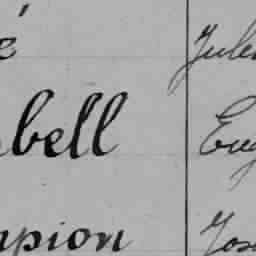 é Jule
bell Eug
pion Jos